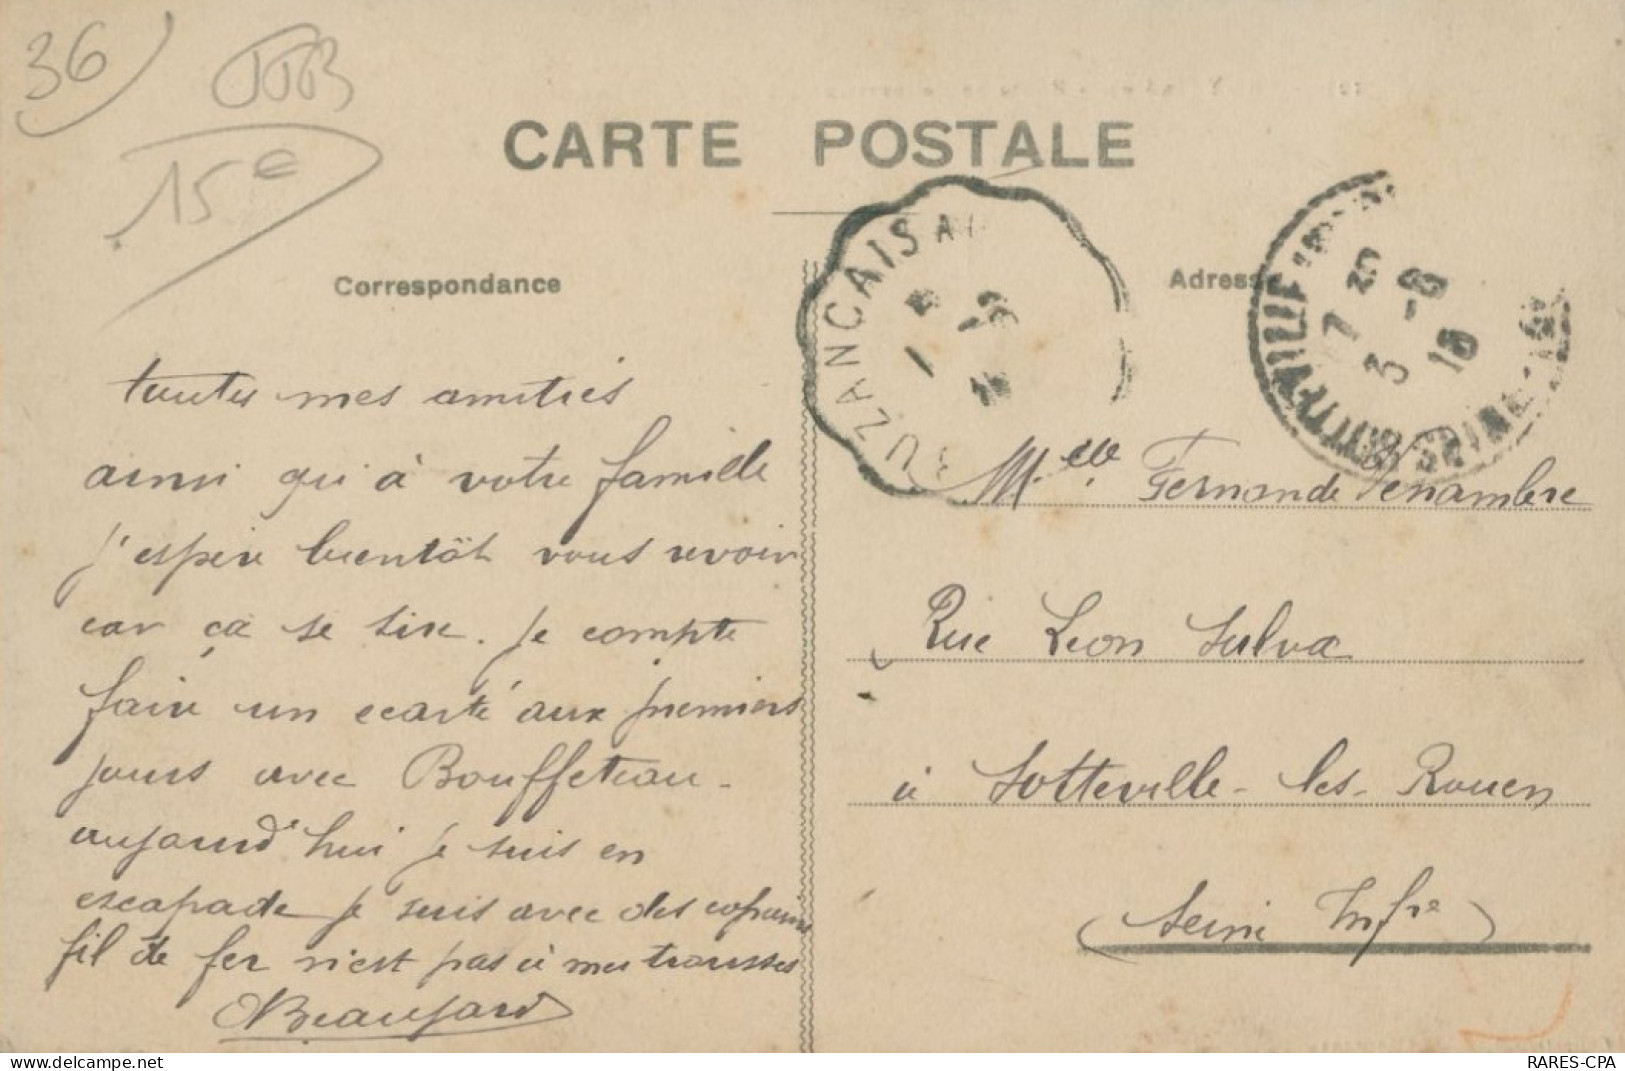 36
TTB
15€
CARTE POSTALE
Correspondance
Adresse
BUZANCAIS A
1 5
7 30
3 - 8
18
toutes mes amitiés
ainsi qu'à votre famille
j'espère bientôt vous revoir
car ça se tire. Je compte
faire un ecarté aux premiers
jours avec Bouffeteau -
aujourd'hui je suis en
escapade je suis avec des copains
fil de fer n'est pas à mes trousses
Beaujard
Melle Fernande Senambre
Rue Leon Salva
à Sotteville - les - Rouen
(Seine Infre)
RARES-CPA
www.delcampe.net